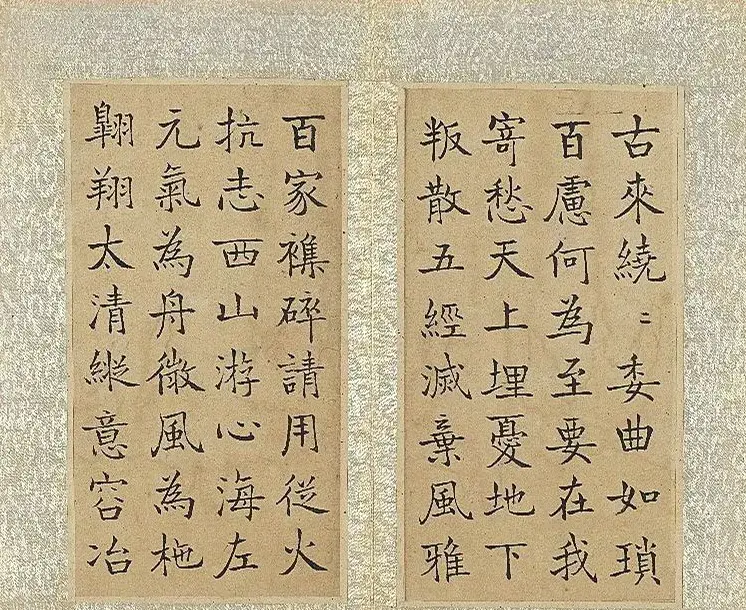 古來繞〻委曲如瑣
百慮何為至要在我
寄愁天上埋憂地下
叛散五經滅棄風雅
百家襍碎請用從火
抗志西山游心海左
元氣為舟微風為柂
翺翔太清縱意容冶